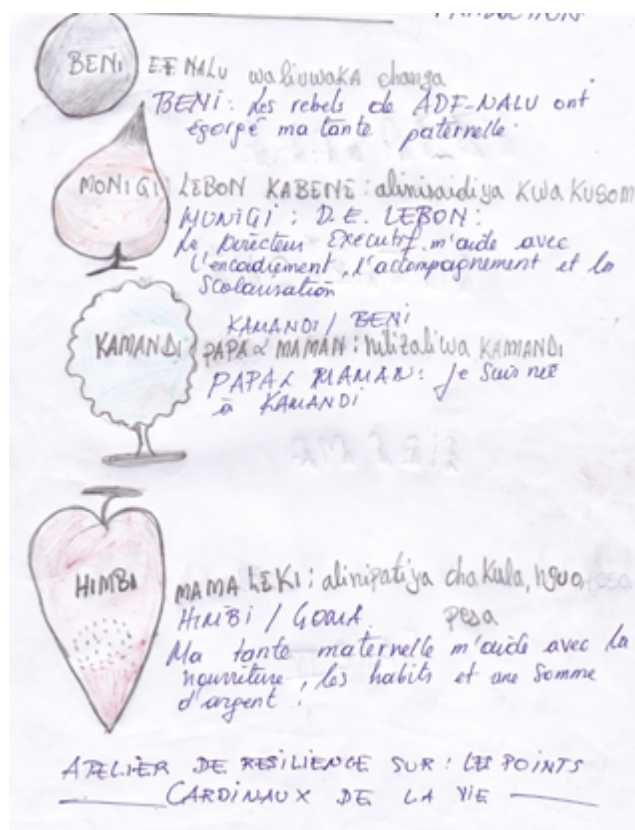 PRODUCTION
BENI
E.F NALU waliuwaKA changa
BENI: Les rebels de ADF-NALU ont
égorgé ma tante paternelle.
MONIGI
LEBON KABENE: alinisaidiya Kwa Kusom
MUNIGI: D.E. LEBON:
Le Directeur Executif m'aide avec
l'encadrement, l'accompagnement et la
Scolarisation
KAMANDI / BENI
KAMANDI
PAPA & MAMAN: nilizaliwa KAMANDI
PAPA & MAMAN: Je Suis née
à KAMANDI
HIMBI
MAMA LEKI: alinipatiya chaKula, nguo,
pesa
HIMBI / GOMA
Ma tante maternelle m'aide avec la
nourriture, les habits et une Somme
d'argent.
ATELIER DE RESILIENCE SUR: LES POINTS
CARDINAUX DE LA VIE